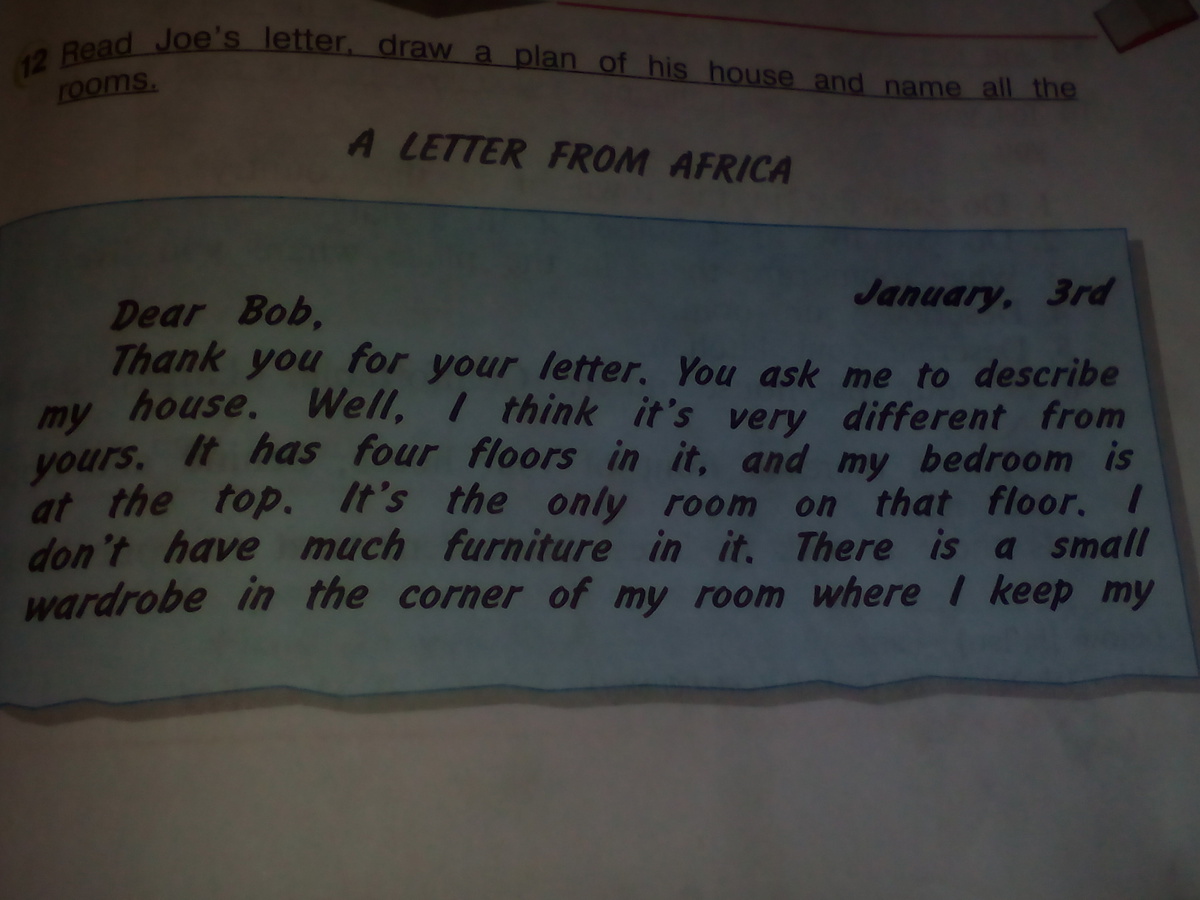 12 Read Joe's letter, draw a plan of his house and name all the
rooms.
A LETTER FROM AFRICA
January, 3rd
Dear Bob,
Thank you for your letter. You ask me to describe
my house. Well, I think it's very different from
yours. It has four floors in it, and my bedroom is
at the top. It's the only room on that floor. I
don't have much furniture in it. There is a small
wardrobe in the corner of my room where I keep my